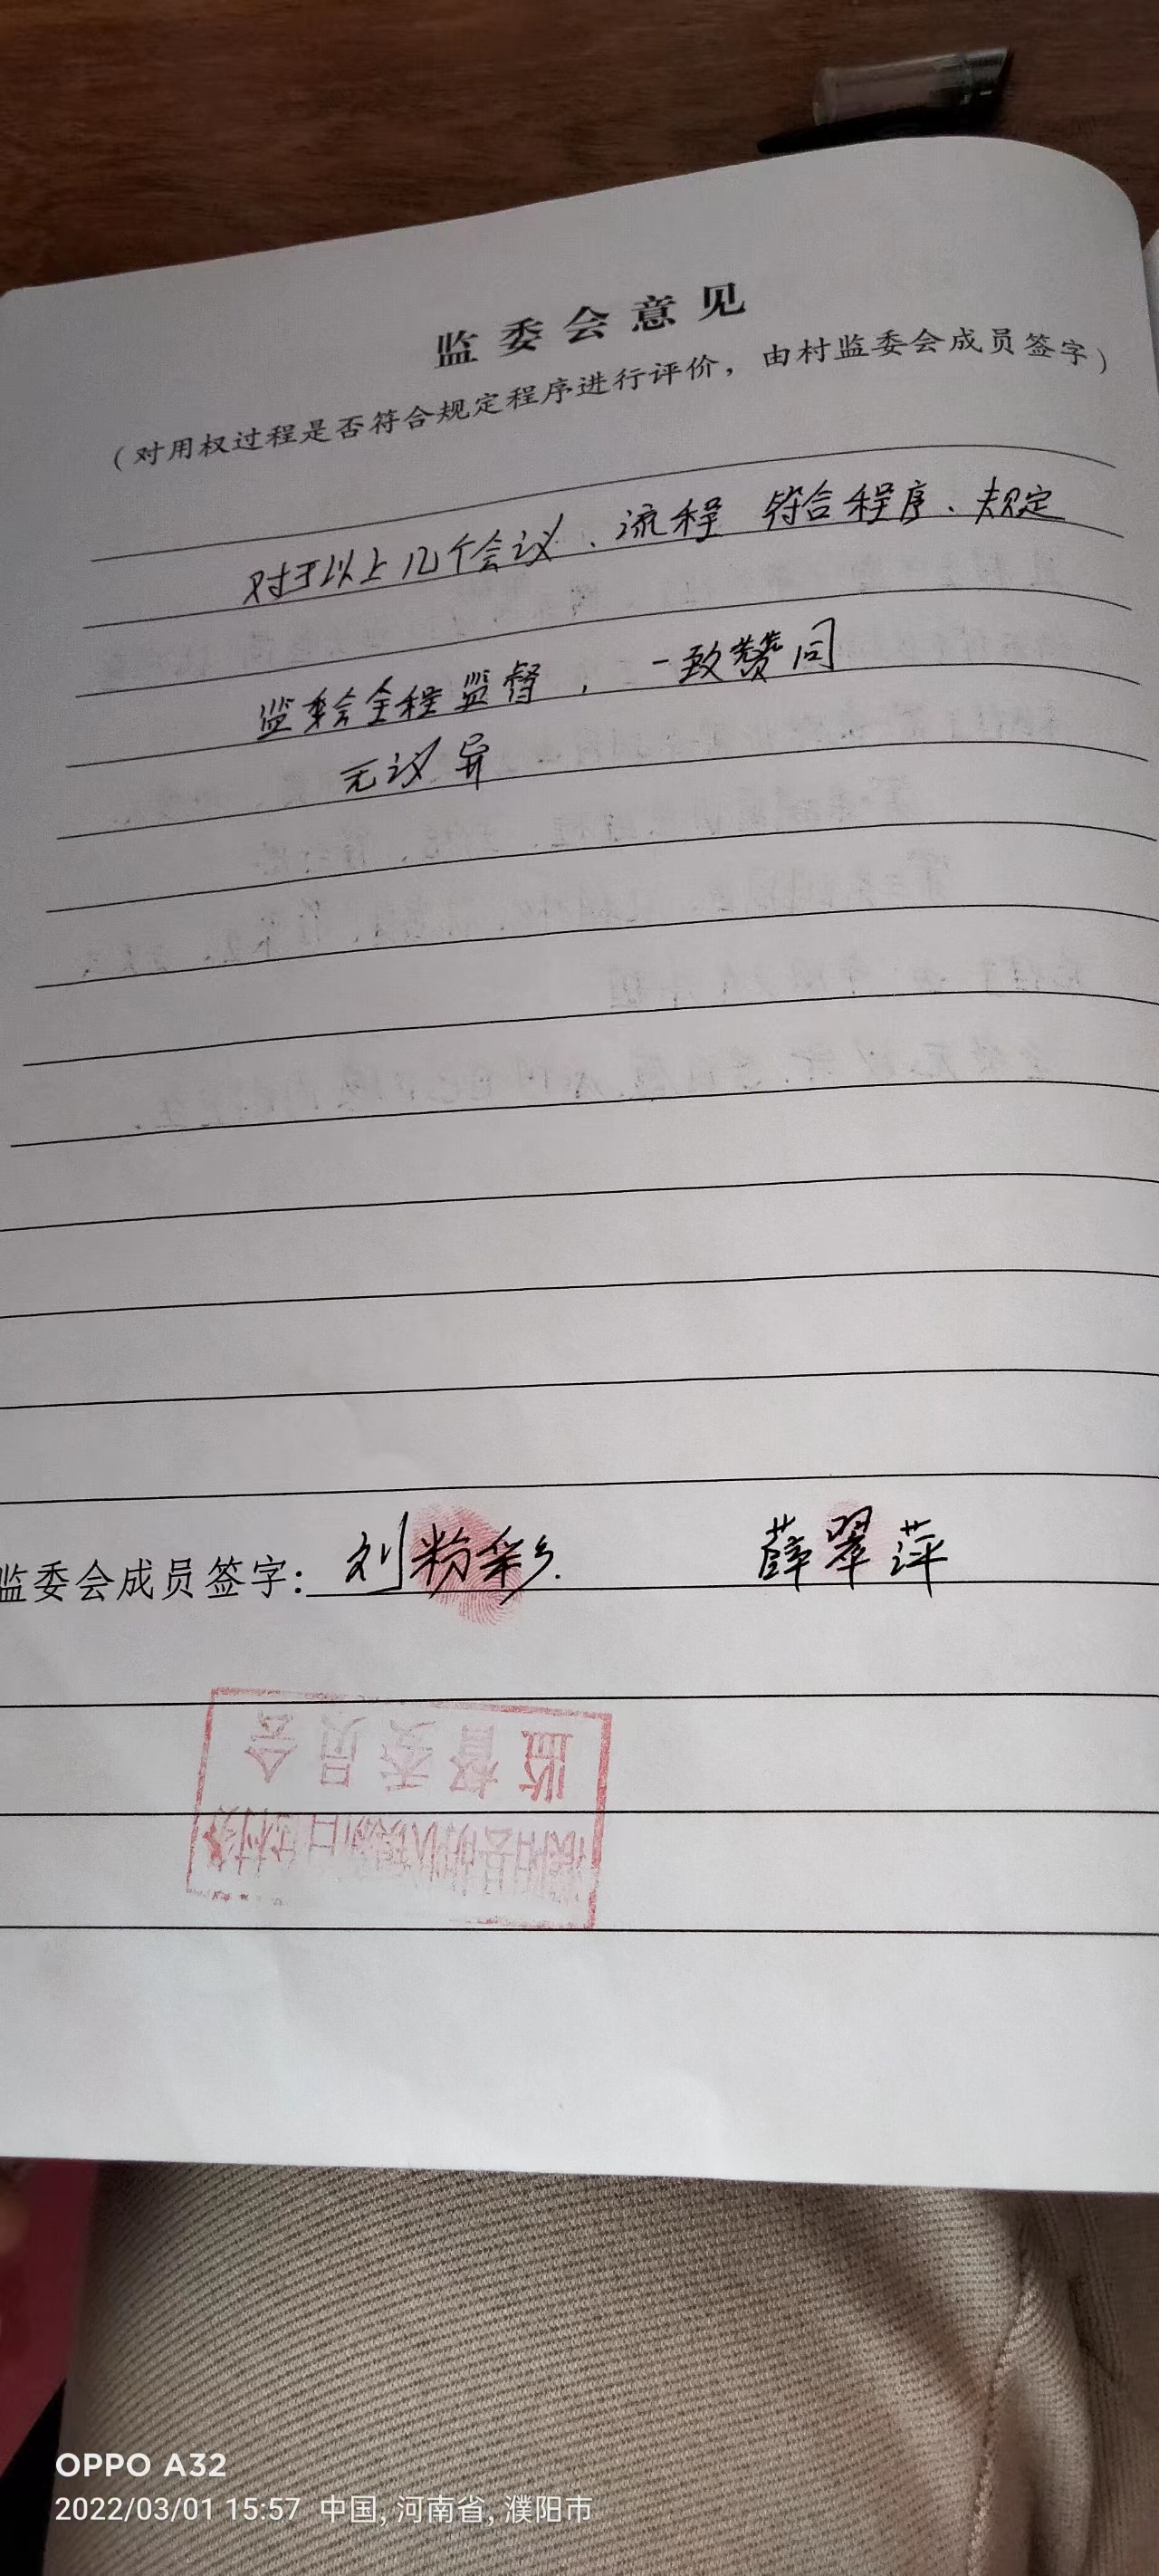 监委会意见
（对用权过程是否符合规定程序进行评价，由村监委会成员签字）
对于以上几个会议、流程 符合程序、规定
监委会全程监督，一致赞同
无议异
监委会成员签字：刘粉彩. 薛翠萍
监督委员会
OPPO A32
2022/03/01 15:57 中国, 河南省, 濮阳市